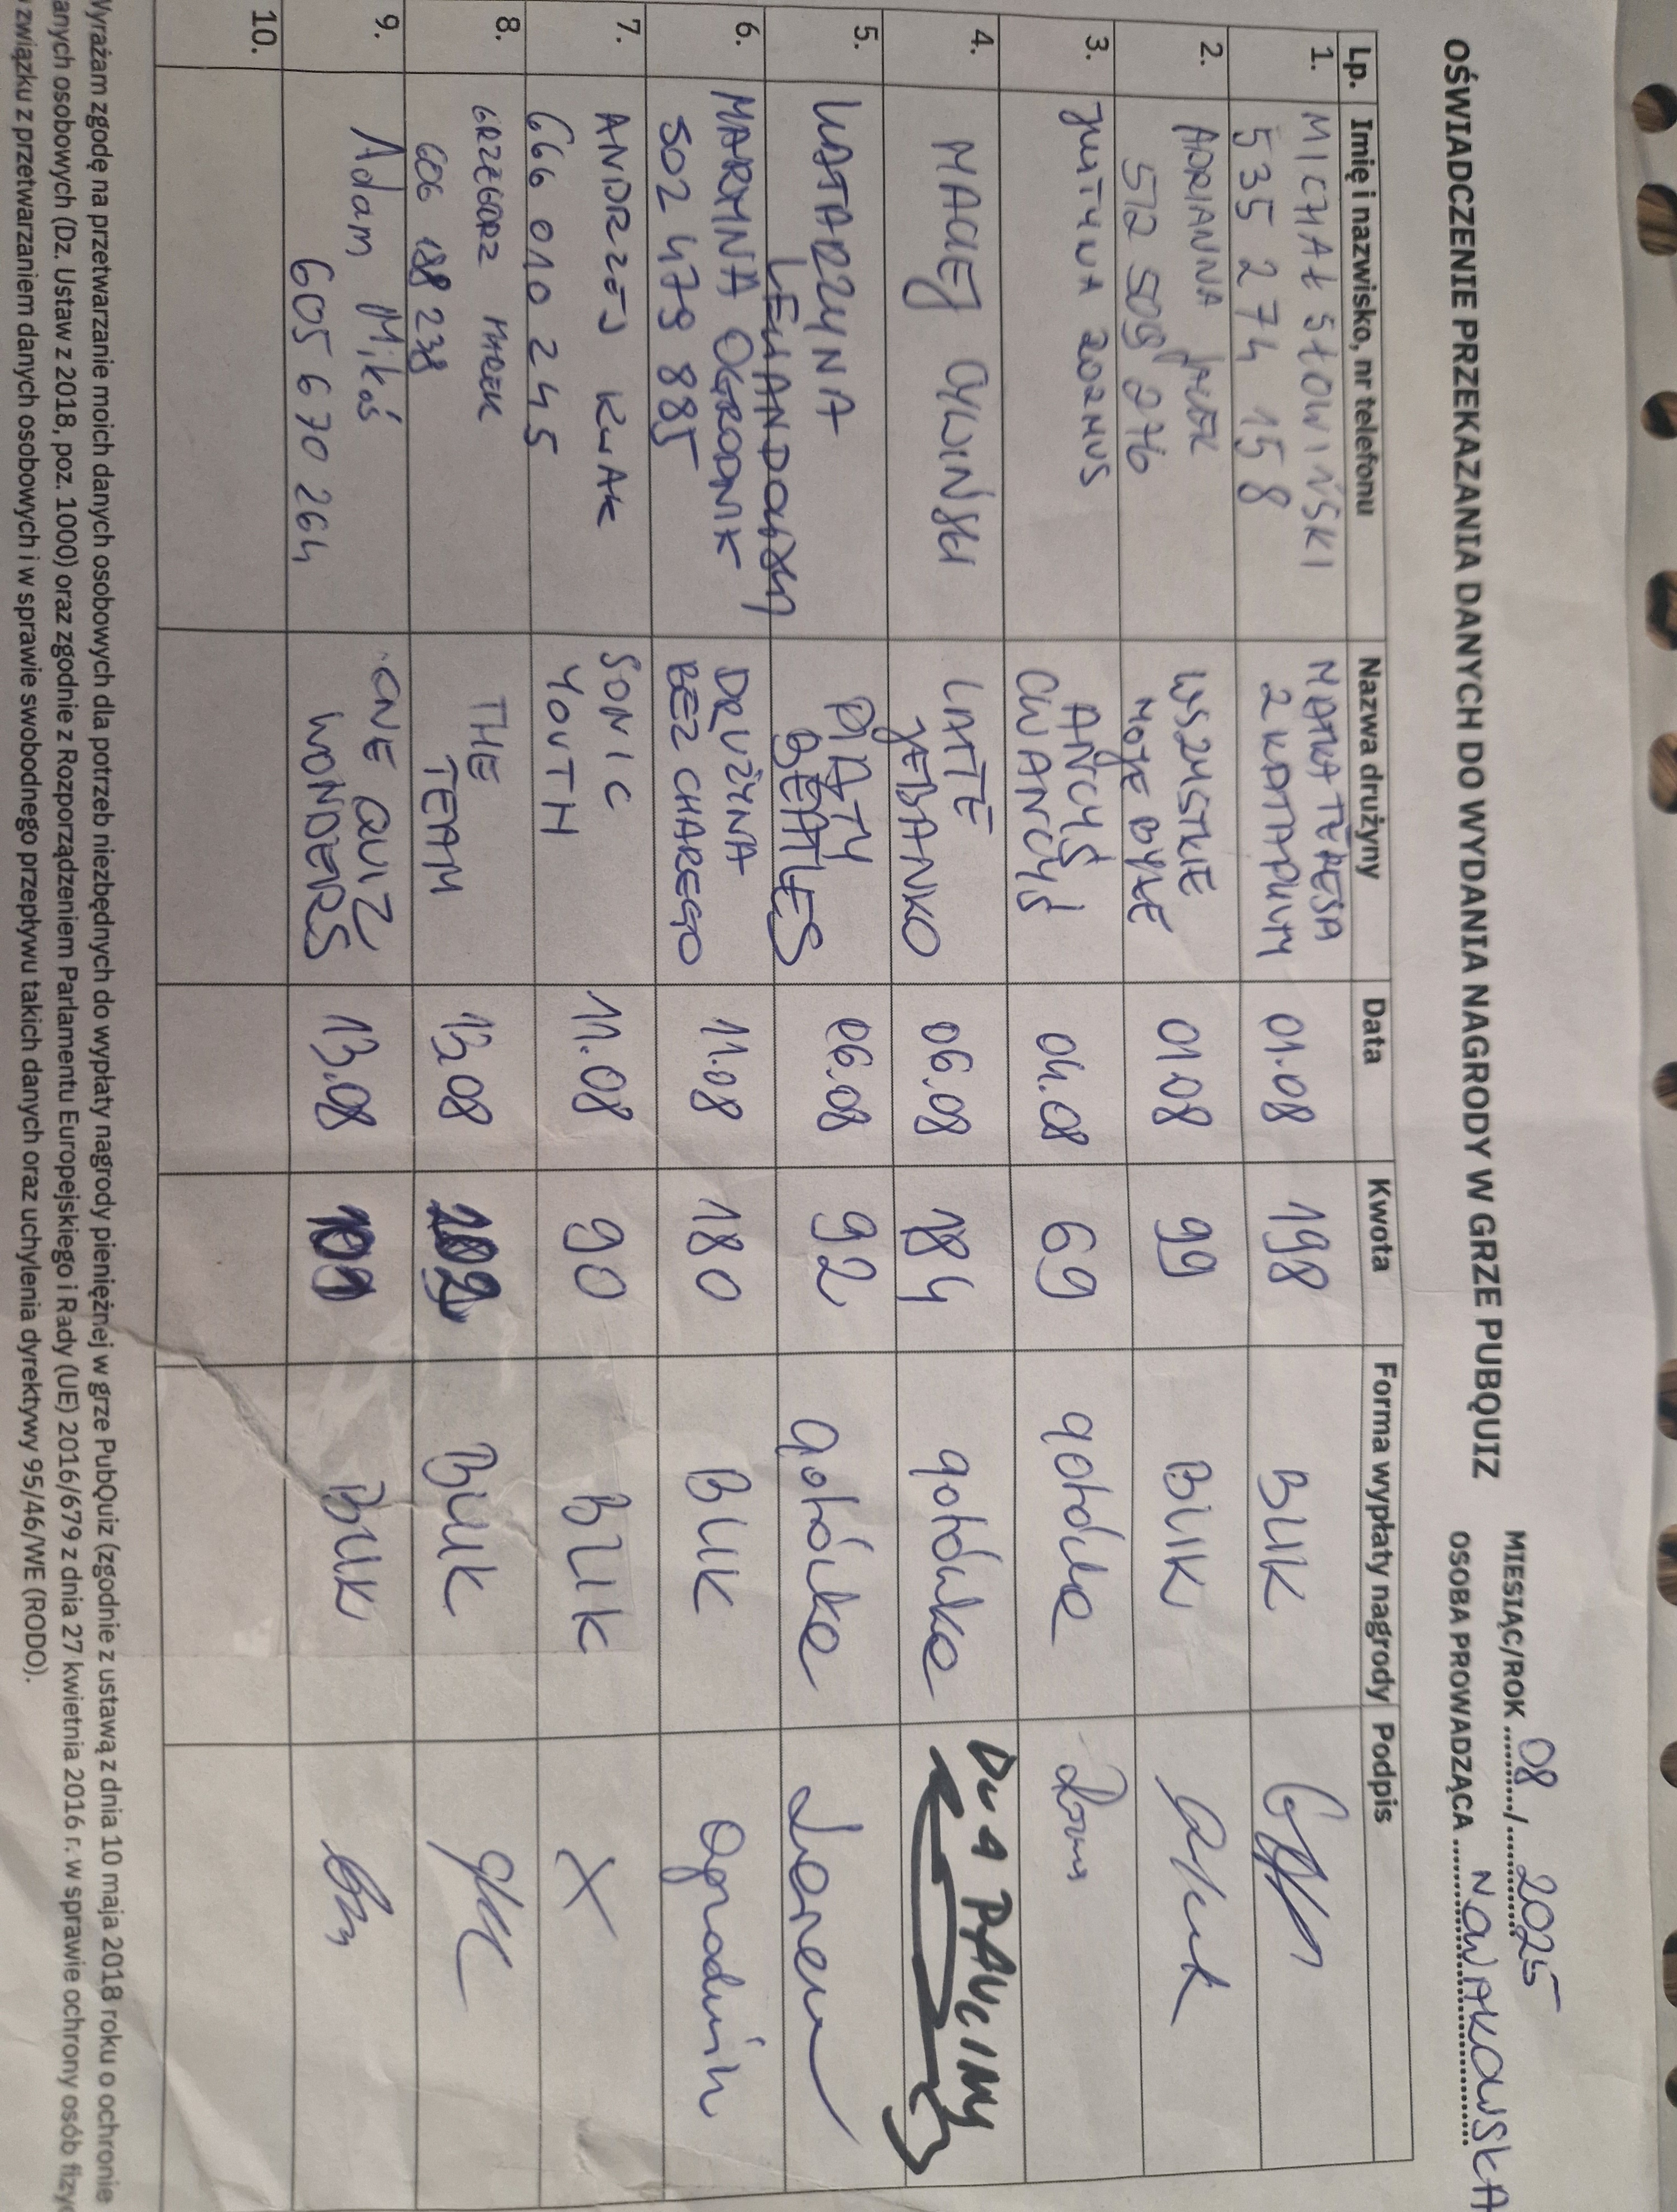 OŚWIADCZENIE PRZEKAZANIA DANYCH DO WYDANIA NAGRODY W GRZE PUBQUIZ
MIESIĄC/ROK 08 / 2025
OSOBA PROWADZĄCA NOWAKOWSKA
Lp. Imię i nazwisko, nr telefonu Nazwa drużyny Data Kwota Forma wypłaty nagrody Podpis
1. MICHAŁ SŁOWIŃSKI MATKA TERESA 01.08 198 BLIK
535 274 158 2 KATAPULTY
2. ADRIANNA WSZYSTKIE 01.08 99 BLIK
512 509 276 MOJE BYŁE
3. JUSTYNA ANCYŚ 04.08 69 gotówka
CWANCYŚ
4. MACIEJ CYWIŃSKI LATTE 06.08 184 gotówka
JEBANKO
5. KATARZYNA PIĄTY 06.08 92 gotówka
LEWANDOWSKA BEATLES
6. MARYNA OGRODNIK DRUŻYNA 11.08 180 BLIK Ogrodnik
502 479 885 BEZ CHAREGO
7. ANDRZEJ KWAK SONIC 11.08 90 BLIK X
666 010 245 YOUTH
8. GRZEGORZ THE 13.08 BLIK
606 188 238 TEAM
9. Adam Mikoś ONE QUIZ 13.08 BLIK
605 670 264 WONDERS
10.
Wyrażam zgodę na przetwarzanie moich danych osobowych dla potrzeb niezbędnych do wypłaty nagrody pieniężnej w grze PubQuiz (zgodnie z ustawą z dnia 10 maja 2018 roku o ochronie
danych osobowych (Dz. Ustaw z 2018, poz. 1000) oraz zgodnie z Rozporządzeniem Parlamentu Europejskiego i Rady (UE) 2016/679 z dnia 27 kwietnia 2016 r. w sprawie ochrony osób
związku z przetwarzaniem danych osobowych i w sprawie swobodnego przepływu takich danych oraz uchylenia dyrektywy 95/46/WE (RODO).